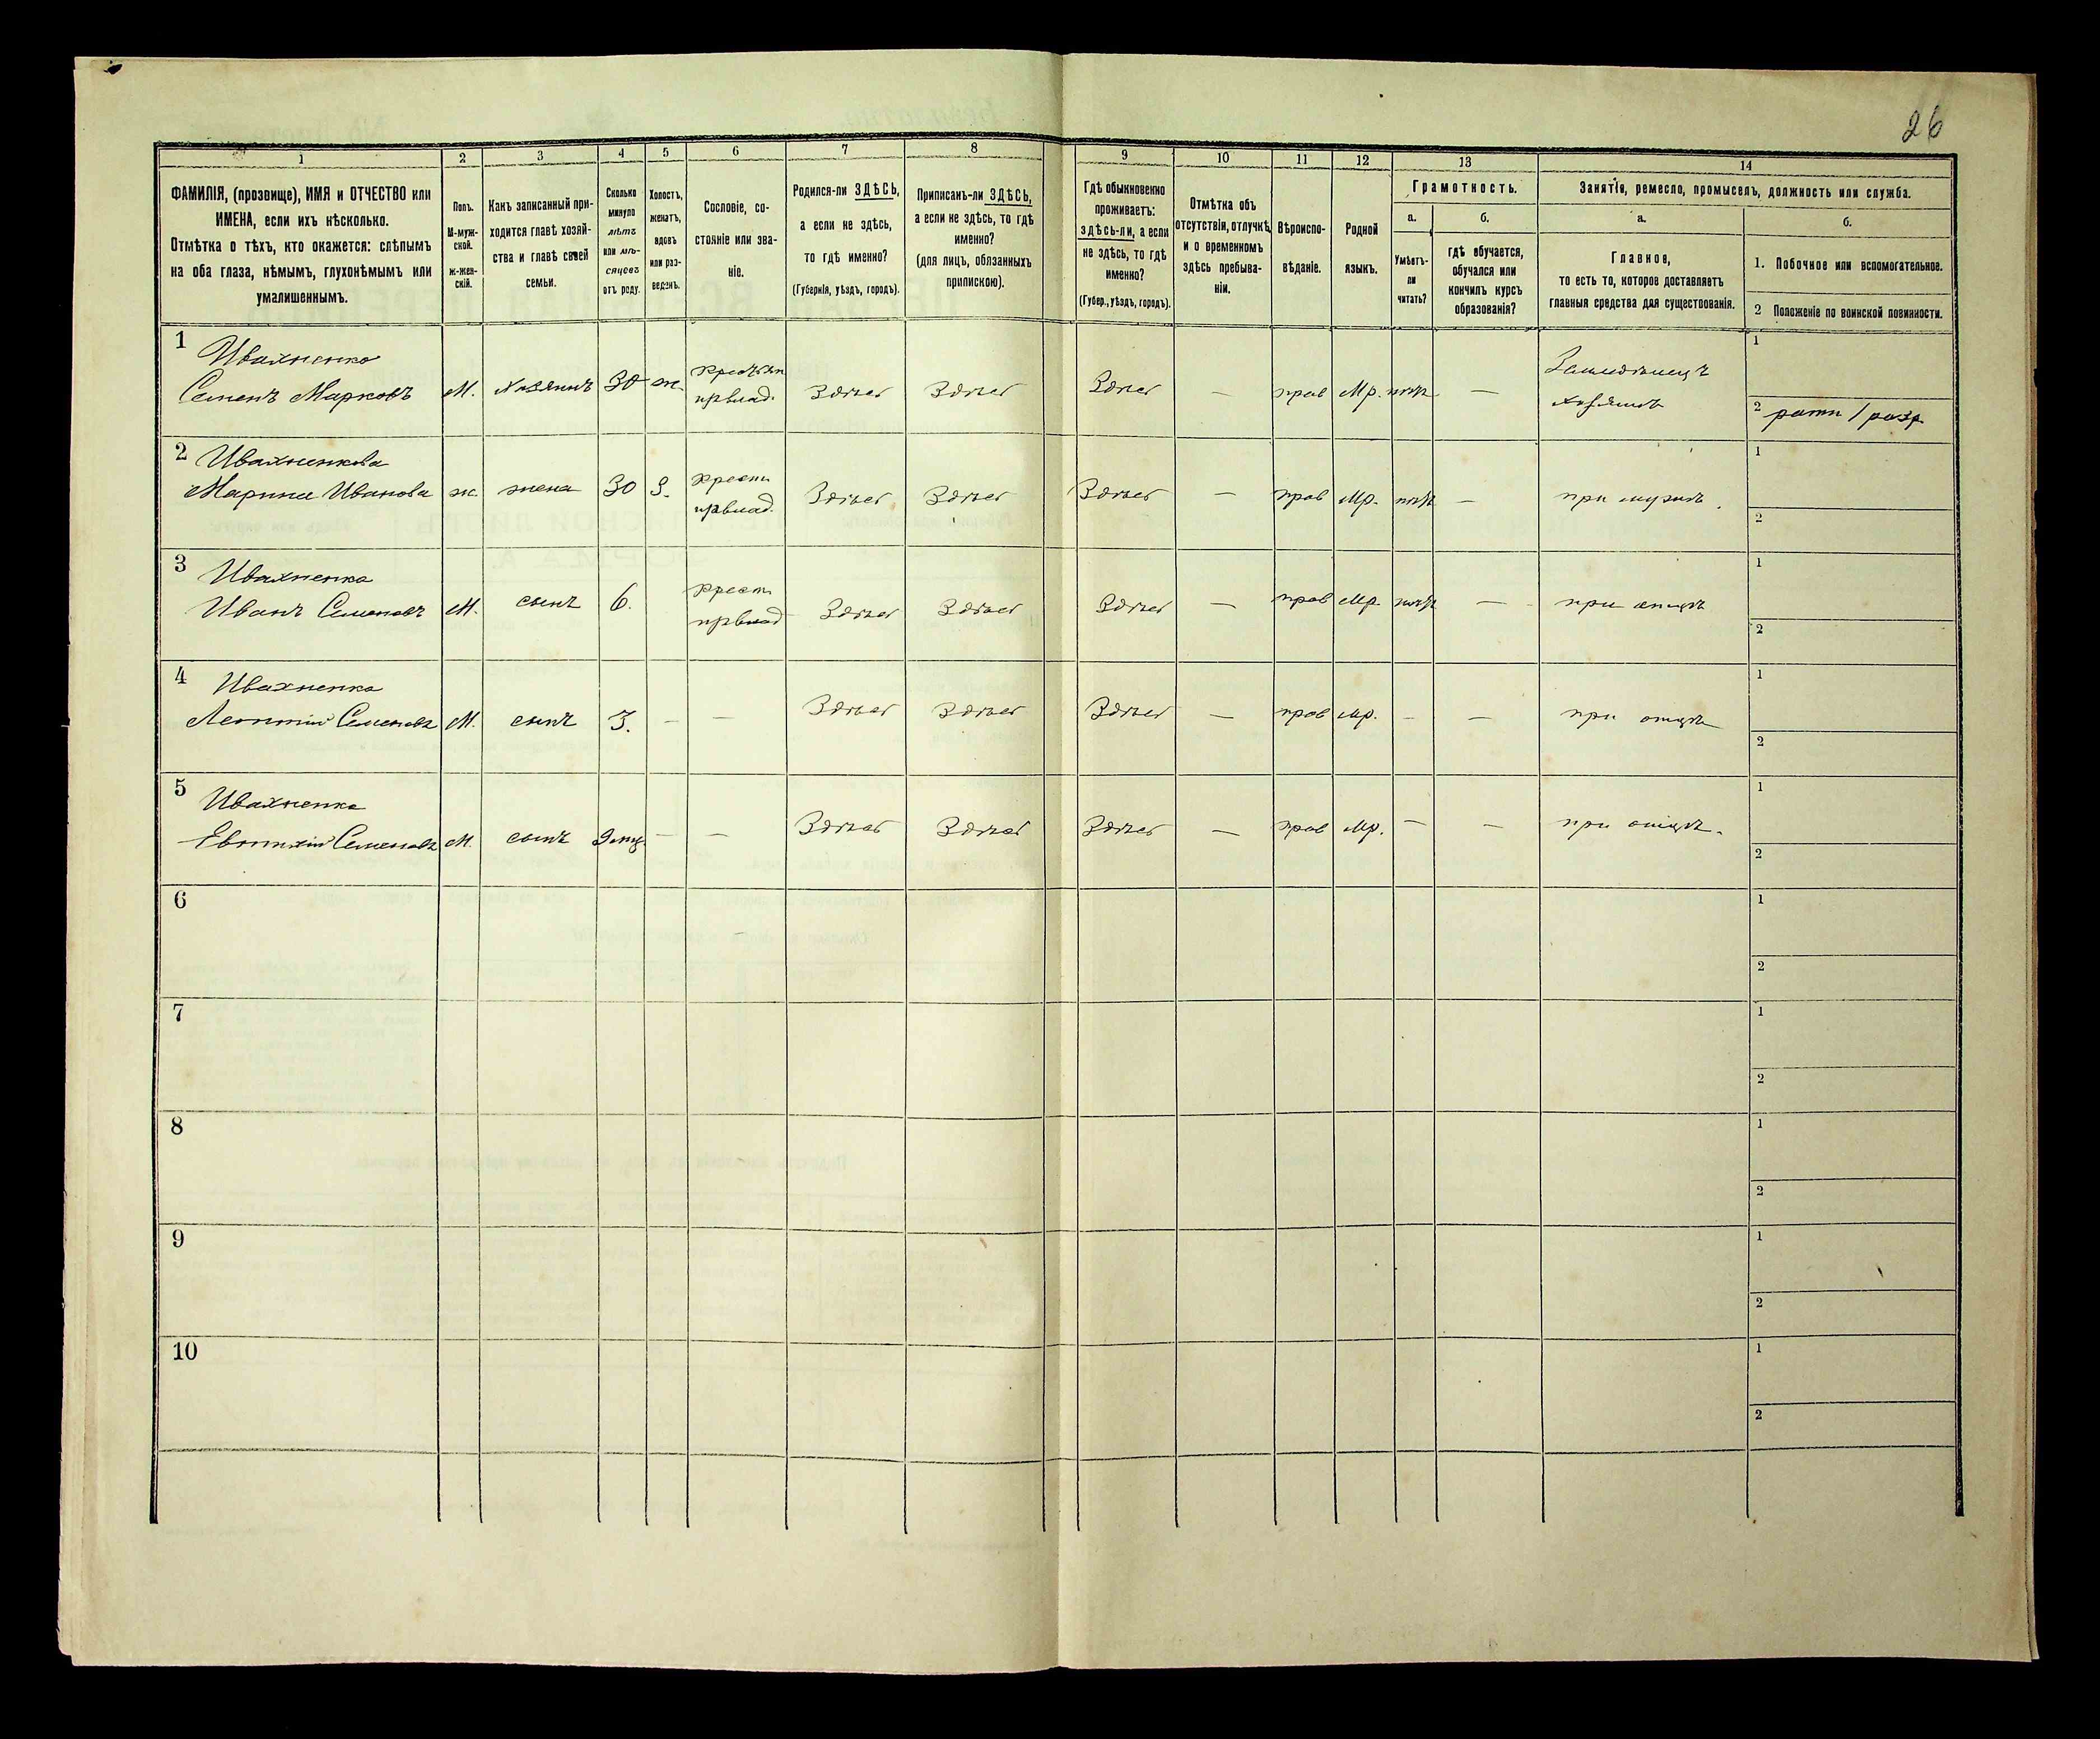 26
1 2 3 4 5 6 7 8 9 10 11 12 13 14
ФАМИЛІЯ, (прозвище), ИМЯ и ОТЧЕСТВО или
ИМЕНА, если ихъ нѣсколько.
Отмѣтка о тѣхъ, кто окажется: слѣпымъ
на оба глаза, нѣмымъ, глухонѣмымъ или
умалишеннымъ.
Полъ.
М-муж-
ской.
ж-жен-
скій.
Какъ записанный при-
ходится главѣ хозяй-
ства и главѣ своей
семьи.
Сколько
минуло
лѣтъ
или мѣ-
сяцевъ
отъ роду.
Холостъ,
женатъ,
вдовъ
или раз-
веденъ.
Сословіе, со-
стояніе или зва-
ніе.
Родился-ли ЗДѢСЬ,
а если не здѣсь,
то гдѣ именно?
(Губернія, уѣздъ, городъ).
Приписанъ-ли ЗДѢСЬ,
а если не здѣсь, то гдѣ
именно?
(для лицъ, обязанныхъ
припискою).
Гдѣ обыкновенно
проживаетъ:
здѣсь-ли, а если
не здѣсь, то гдѣ
именно?
(Губер., уѣздъ, городъ).
Отмѣтка объ
отсутствіи, отлучкѣ
и о временномъ
здѣсь пребыва-
ніи.
Вѣроиспо-
вѣданіе.
Родной
языкъ.
Грамотность.
а.
Умѣетъ-
ли
читать?
б.
гдѣ обучается,
обучался или
кончилъ курсъ
образованія?
Занятія, ремесло, промыселъ, должность или служба.
а.
Главное,
то есть то, которое доставляетъ
главныя средства для существованія.
б.
1. Побочное или вспомогательное.
2 Положеніе по воинской повинности.
1
Ивахненко
Семенъ Марковъ М. хозяинъ 30 ж. крестьян
црвлад. Здѣсь Здѣсь Здѣсь — прав Мр. нѣтъ —
Земледѣлецъ
хозяинъ
1
2 ратн 1 разр
2 Ивахненкова
Марина Иванова ж. жена 30 З. крест
црвлад. Здѣсь Здѣсь Здѣсь — прав Мр. нѣтъ — при мужѣ.
1
2
3 Ивахненко
Иванъ Семеновъ М. сынъ 6. крест
црвлад Здѣсь Здѣсь Здѣсь — прав Мр. нѣтъ — при отцѣ
1
2
4 Ивахненко
Леонтій Семеновъ М. сынъ 3. — — Здѣсь Здѣсь Здѣсь — прав Мр. — — при отцѣ
1
2
5 Ивахненко
Евтихій Семеновъ М. сынъ 9 мц. — — Здѣсь Здѣсь Здѣсь — прав Мр. — — при отцѣ.
1
2
6
1
2
7
1
2
8
1
2
9
1
2
10
1
2